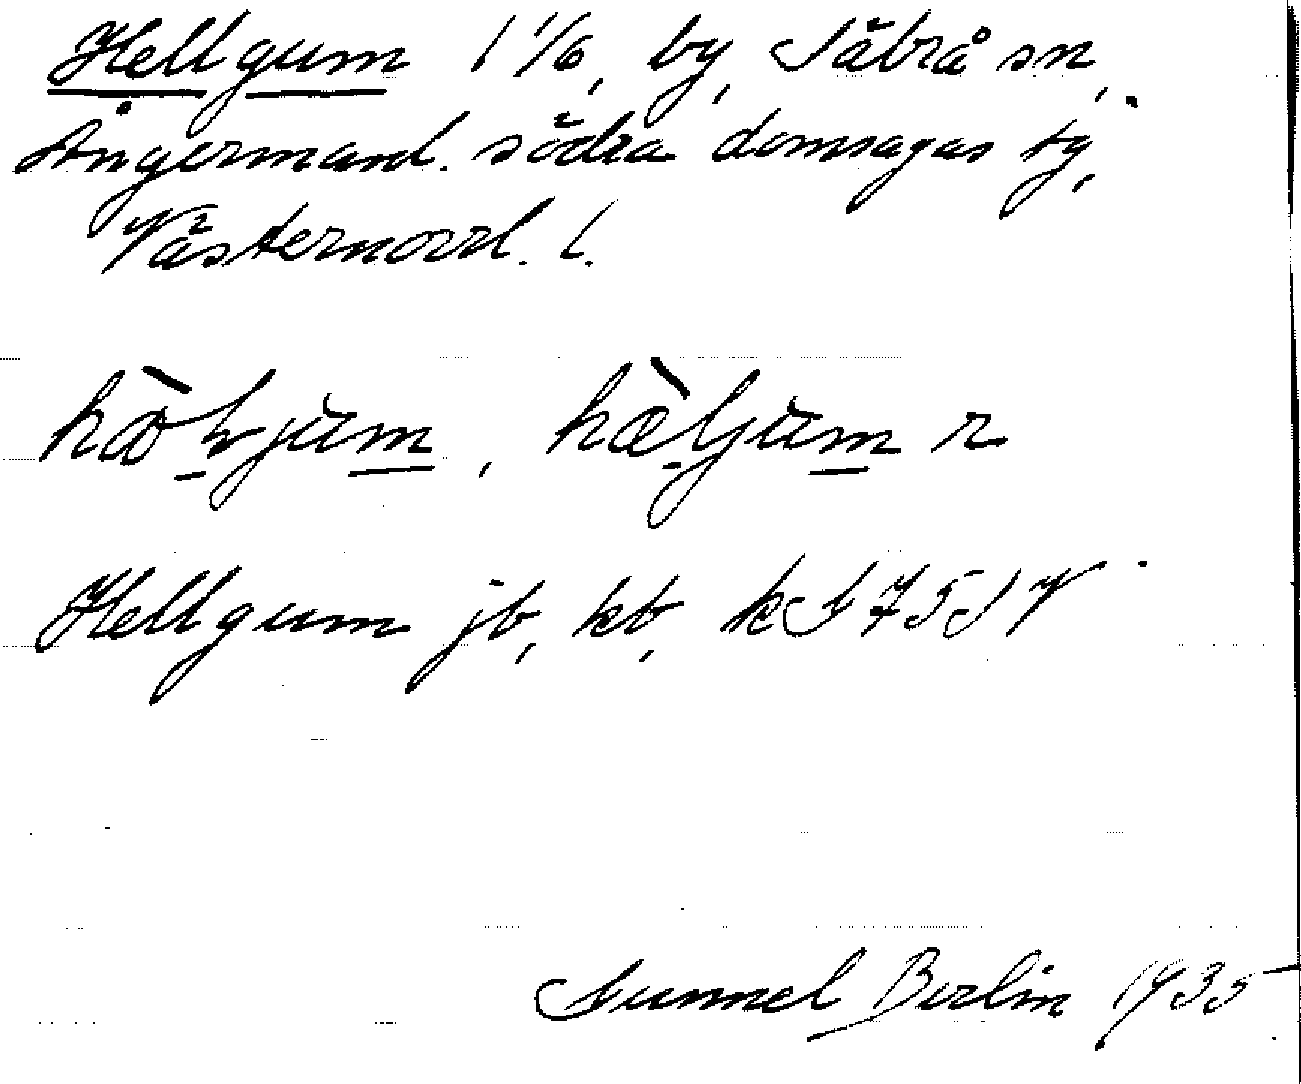 Hellgum 1 1/6, by, Säbrå sn,
Ångermanl. södra domsagas tg,
Västernorrl. l.
hæ̀ljum, hæ̀ljum r
Hellgum jb, kb, kS 7517
Gunnel Berlin 1935